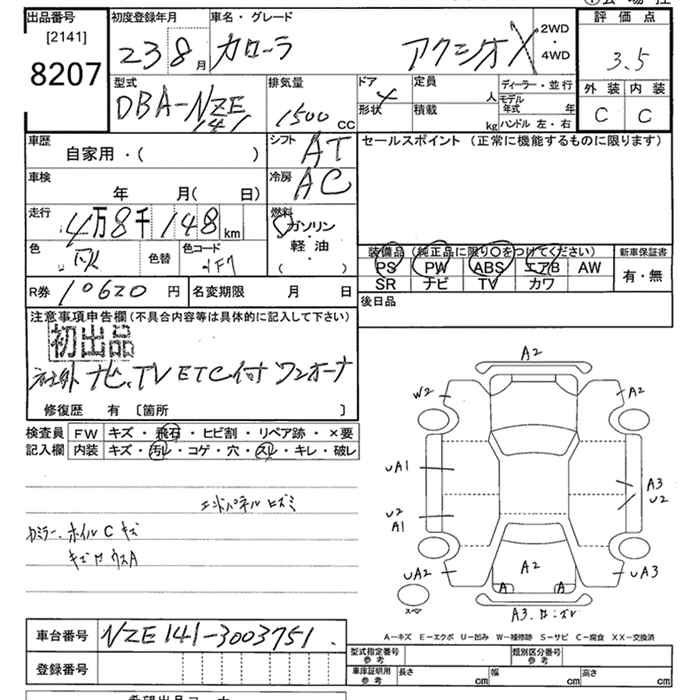 出品番号 初度登録年月 車名・グレード 評価点
[2141]
8207
23 8月 カローラ アクシオ X 2WD・4WD 3.5
型式 排気量 ドア 定員 人 ディーラー・並行 外装 内装
DBA-NZE141 1500cc 4 形状 積載 kg モデル年式 年 ハンドル 左・右 C C
車歴 シフト セールスポイント (正常に機能するものに限ります)
自家用・( ) AT
車検 冷房
年 月( 日) AC
走行 4万8千148km 燃料
ガソリン
軽・油
( )
色 色替 色コード
1F7
装備品 (純正品に限り○をつけてください) 新車保証書
PS PW ABS エアB AW 有・無
SR ナビ TV カワ
R券 10620円 名変期限 月 日 後日品
注意事項申告欄(不具合内容等は具体的に記入して下さい)
初出品
社外ナビ、TV ETC付 ワンオーナ
修復歴 有 [箇所 ]
検査員 FW キズ・飛石・ヒビ割・リペア跡・×要
記入欄 内装 キズ・汚レ・コゲ・穴・スレ・キレ・破レ
エンドパネル ヒズミ
ホイルC キズ
A2
W2
A2
UA1
A3
U2
U2
A1
A2
UA2
A A
UA3
スペア
A3
A-キズ E-エクボ U-凹み W-補修跡 S-サビ C-腐食 XX-交換済
車台番号 NZE141-3003751
型式指定番号 参考 類別区分番号 参考
登録番号 車庫証明用 参考 長さ cm 幅 cm 高さ cm